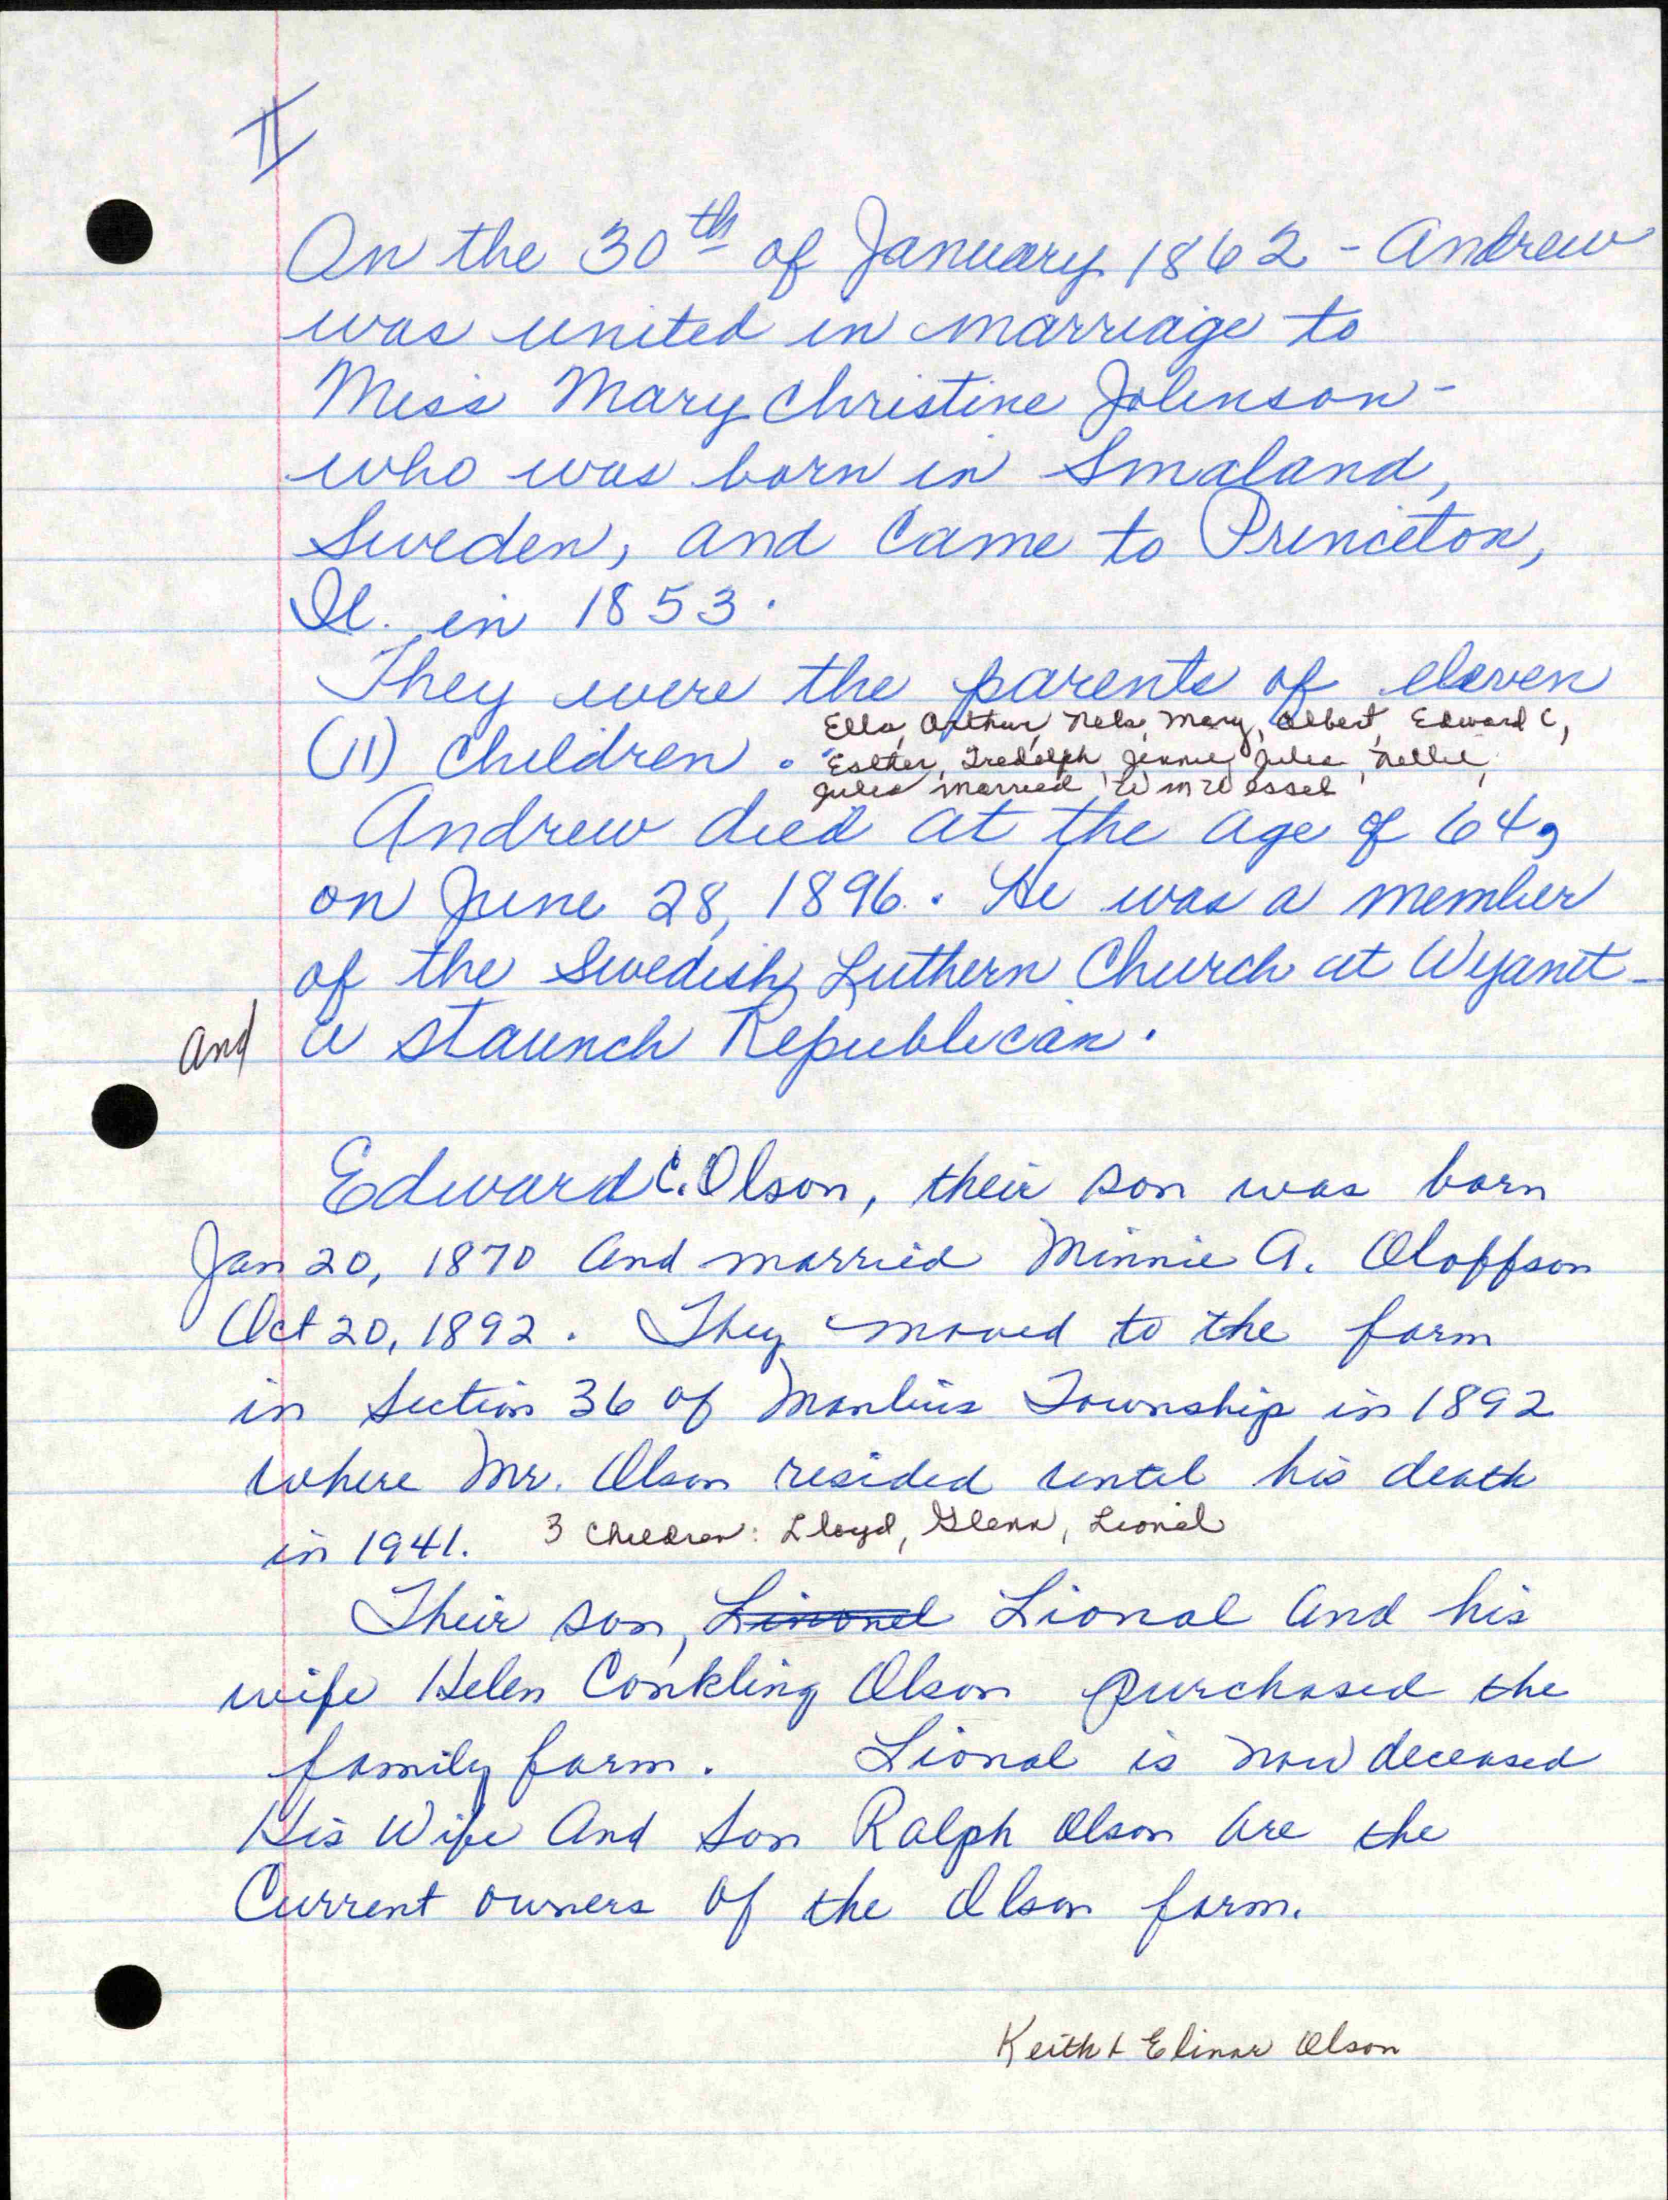 II
On the 30th of January 1862 - Andrew
was united in marriage to
Miss Mary Christine Johnson -
who was born in Smaland,
Sweden, and Came to Princeton,
Il. in 1853.
They were the parents of eleven
Ella, Arthur, Nels, Mary, Albert, Edward C,
(11) Children. Esther, Fredolph, Jennie, Julia, Nellie,
Julia married Wm Wessel
Andrew died at the age of 64,
on June 28, 1896. He was a member
of the Swedish Luthern Church at Wyanet -
and a staunch Republican.
Edward C. Olson, their son was born
Jan 20, 1870 and married Minnie A. Oloffson
Oct 20, 1892. They moved to the farm
in Section 36 of Manlius Township in 1892
where Mr. Olson resided until his death
in 1941. 3 Children: Lloyd, Glenn, Lionel
Their son, Linonel Lional and his
wife Helen Conkling Olson purchased the
family farm. Lional is now deceased
His Wife And Son Ralph Olson are the
Current owners of the Olson farm.
Keith & Elinor Olson